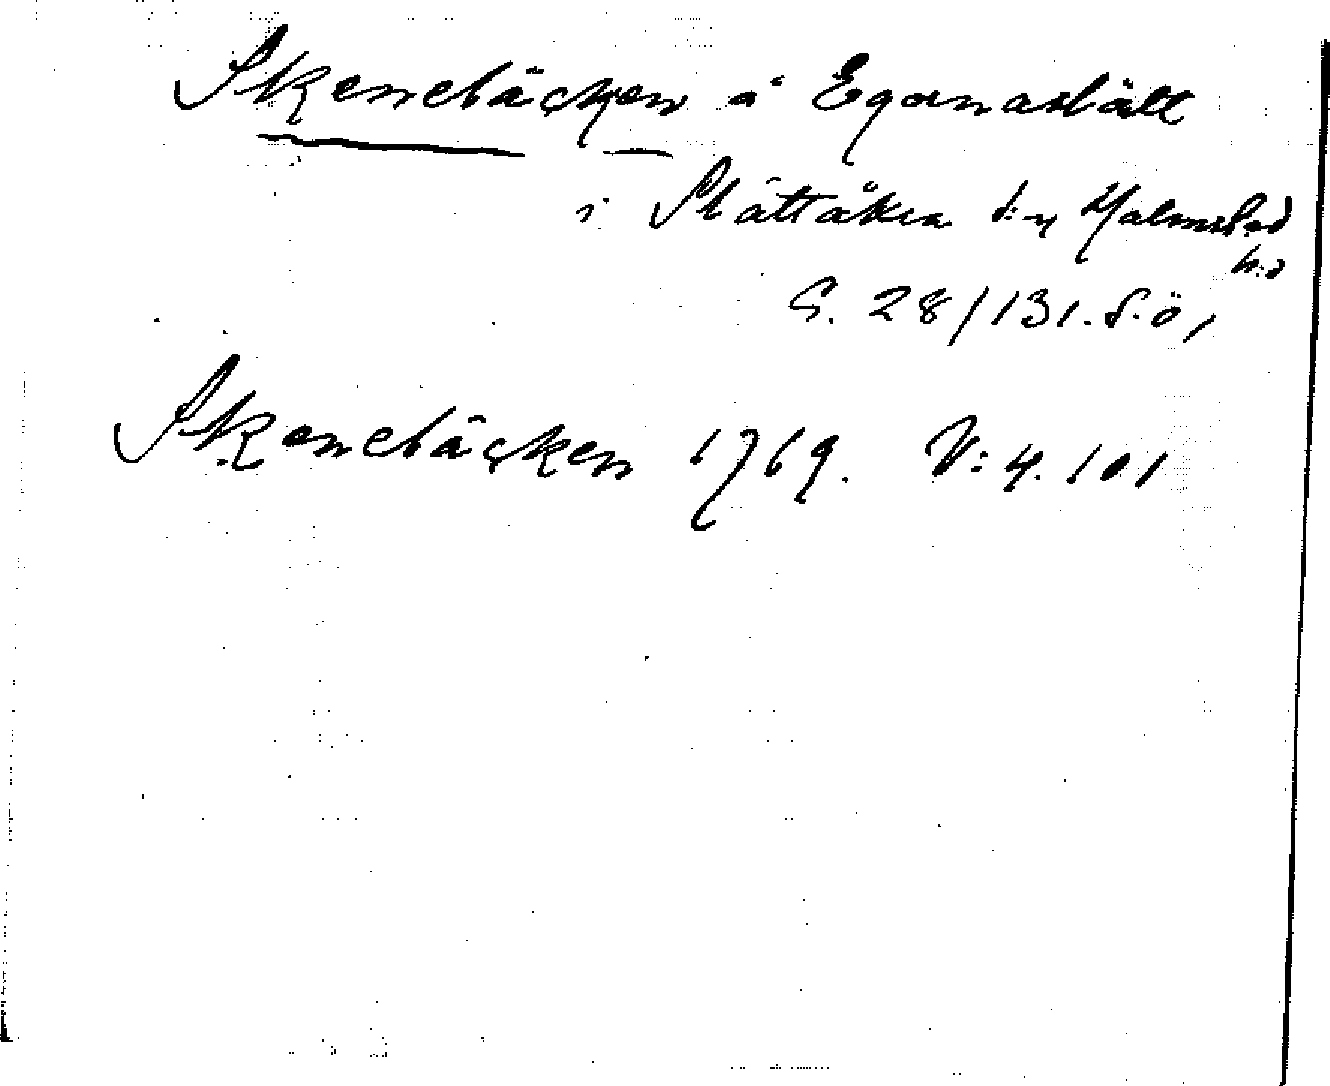 Skenebäcken å Egornaslätt
i Slättåkra s:n Halmstad
h:d
G. 28/131. S.ö,
Skenebäcken 1769. V: 4. 101